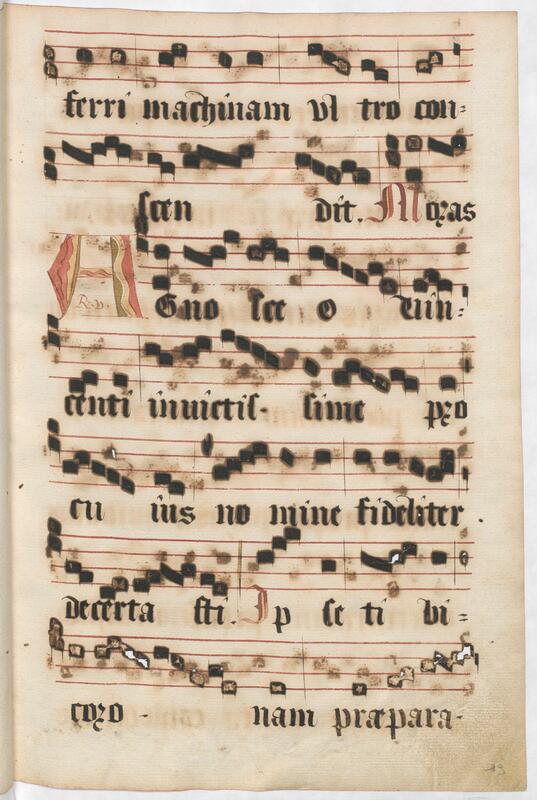 ferri machinam vl tro con=
scen dit. Moras
R. v.
AGno sce o Vin=
centi invictis- sime pro
cu ius no mine fideliter.
decerta sti. Ip se ti bi=
coro- nam præpara-